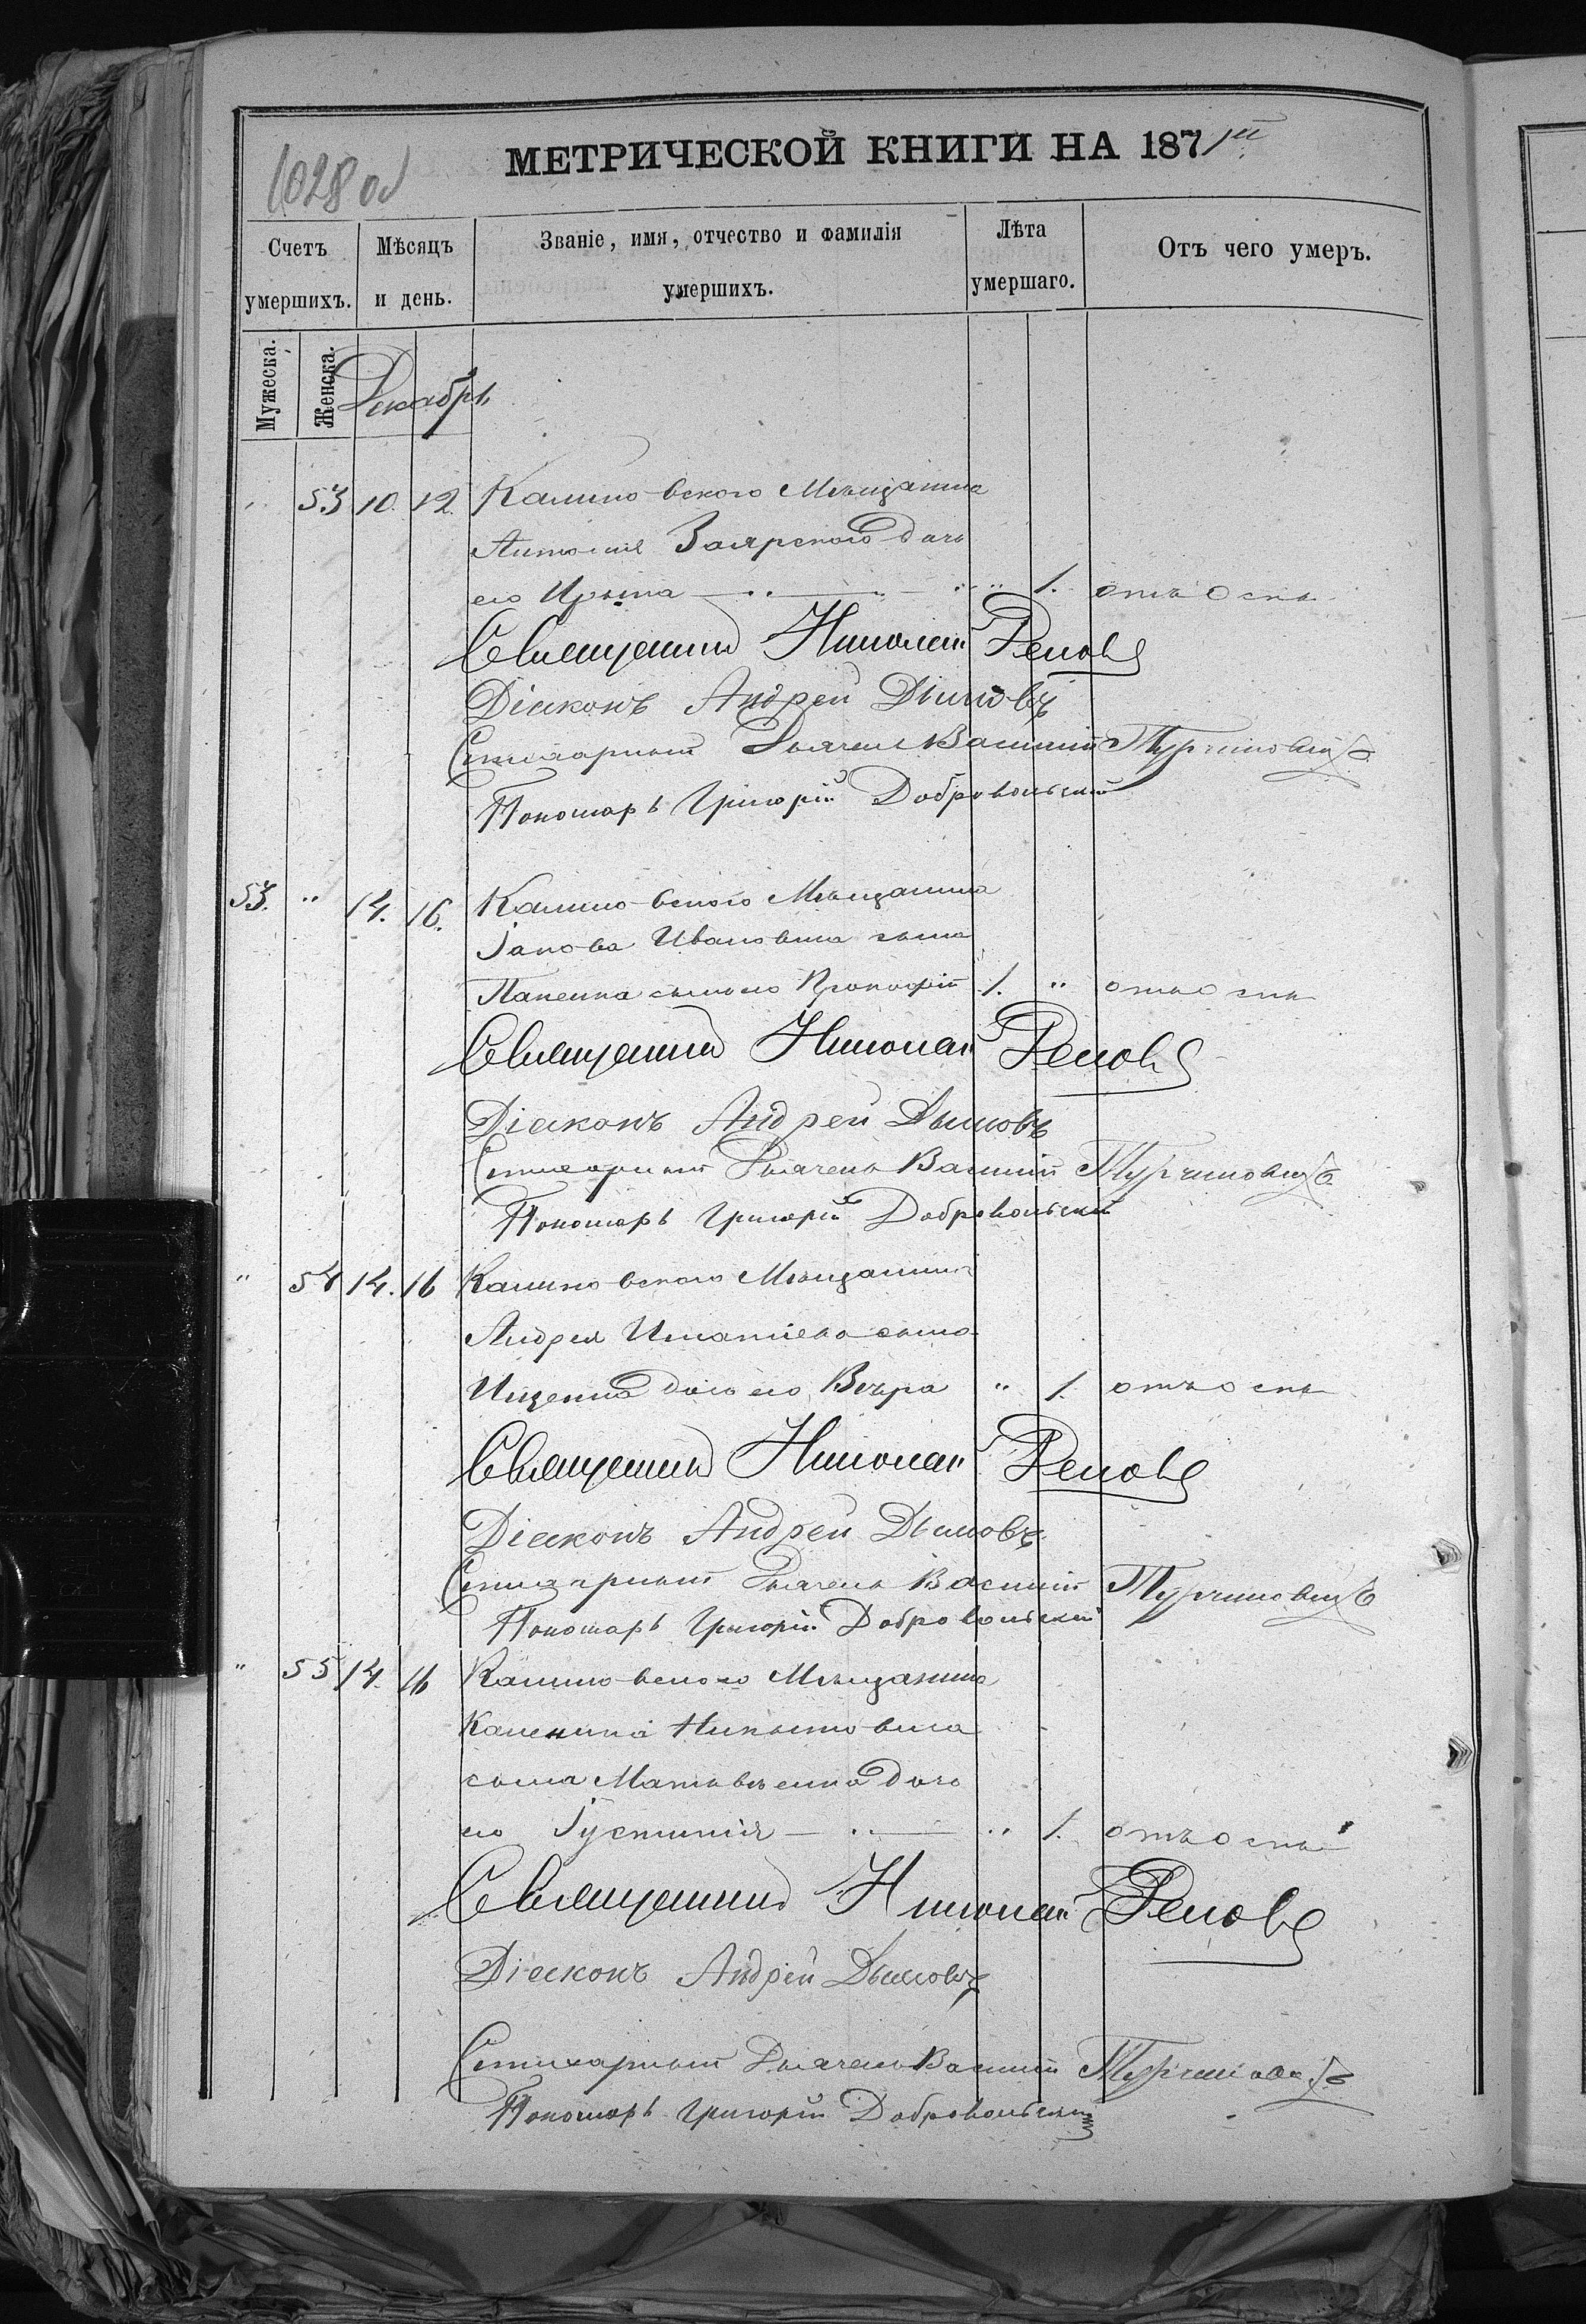 1028 об
МЕТРИЧЕСКОЙ КНИГИ НА 1871й
Счетъ умершихъ.
Мѣсяцъ и день.
Званіе, имя, отчество и фамилія умершихъ.
Лѣта умершаго.
Отъ чего умеръ.
Мужеска.
Женска.
Декабрь
" 53 10. 12. Калиновского Мѣщанина
Антонія Заярского дочь
его Ирина " 1. отъ оспы
Священникъ Николай
Діаконъ Андрей Дымовъ
Стихарный Дьячекъ Василій Турчиновичъ
Пономарь Григорій Добровольскій
53. " 14. 16. Калиновского Мѣщанина
Іакова Иванова сына
сынъ его Прокофій 1. " отъ оспы
Священникъ Николай
Діаконъ Андрей Дымовъ
Стихарный Дьячекъ Василій Турчиновичъ
Пономарь Григорій Добровольскій
" 54 14. 16 Калиновского Мѣщанина
Андрея Игнатіева сына
Ищенка дочь его Вѣра " 1. отъ оспы
Священникъ Николай
Діаконъ Андрей Дымовъ
Стихарный Дьячекъ Василій Турчиновичъ
Пономарь Григорій Добровольскій
" 55 14. 16 Калиновского Мѣщанина
сына Матвѣенка дочь
его Іустинія " 1. отъ оспы
Священникъ Николай
Діаконъ Андрей Дымовъ
Стихарный Дьячекъ Василій Турчиновичъ
Пономарь Григорій Добровольскій